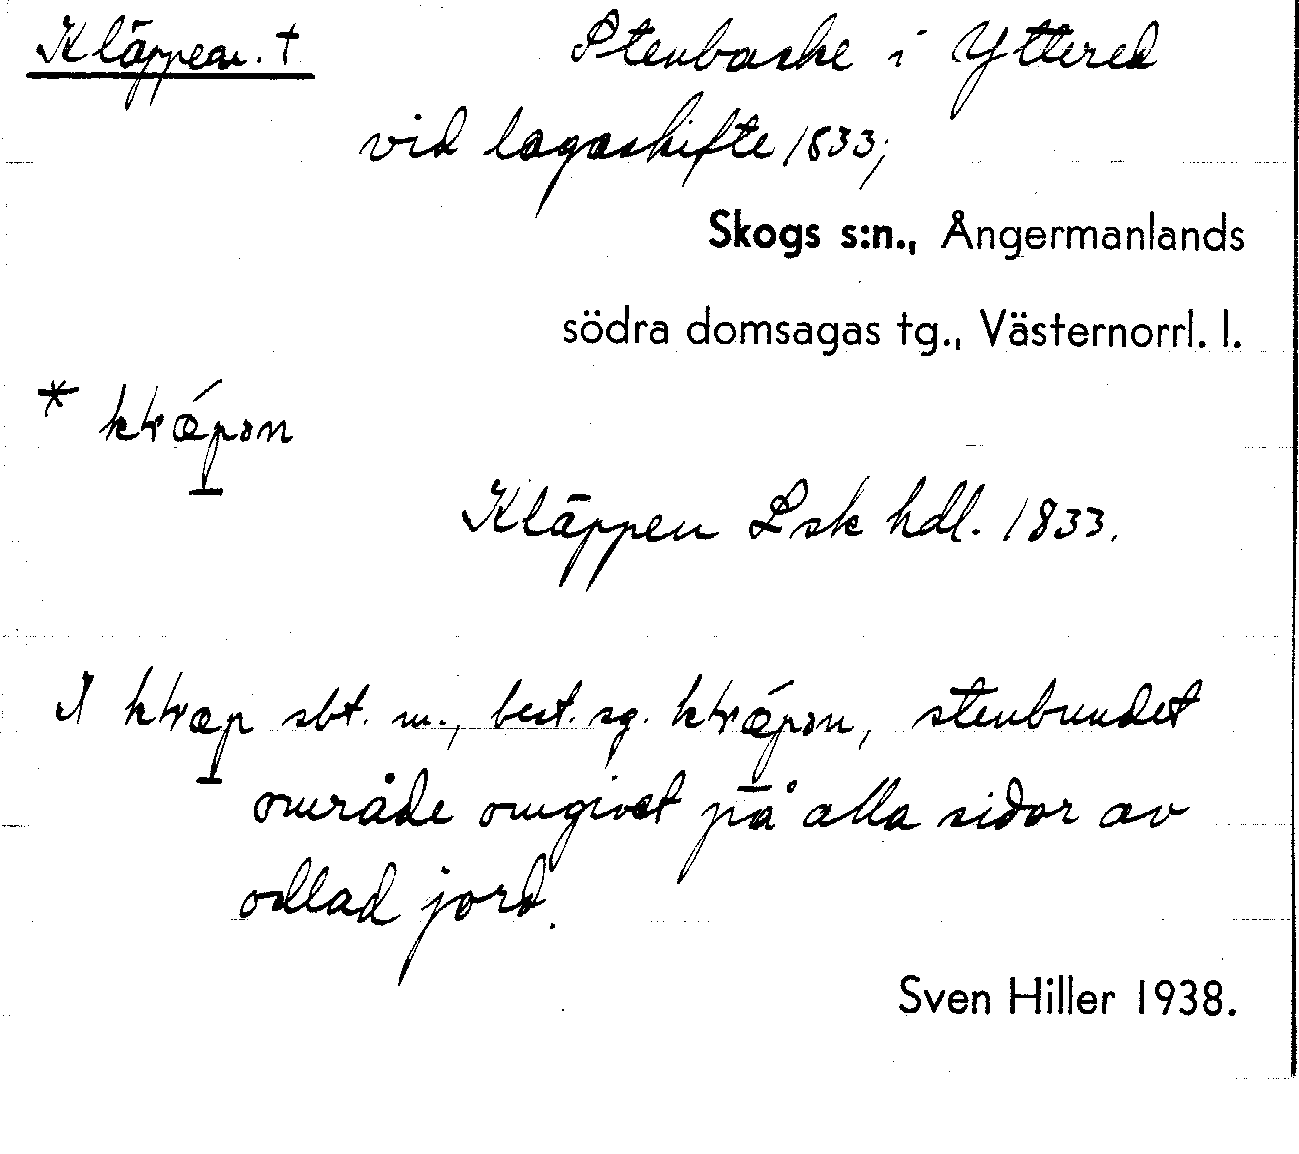 Kläppen. † Stenbacke i Yttered
vid lagaskifte 1833;
Skogs s:n., Ångermanlands
södra domsagas tg., Västernorrl. l.
* kłæ´pən
Kläppen Lsk hdl. 1833.
I kłæp sbt. m., best. sg. kłæ´pən, stenbundet
område omgivet på alla sidor av
odlad jord.
Sven Hiller 1938.